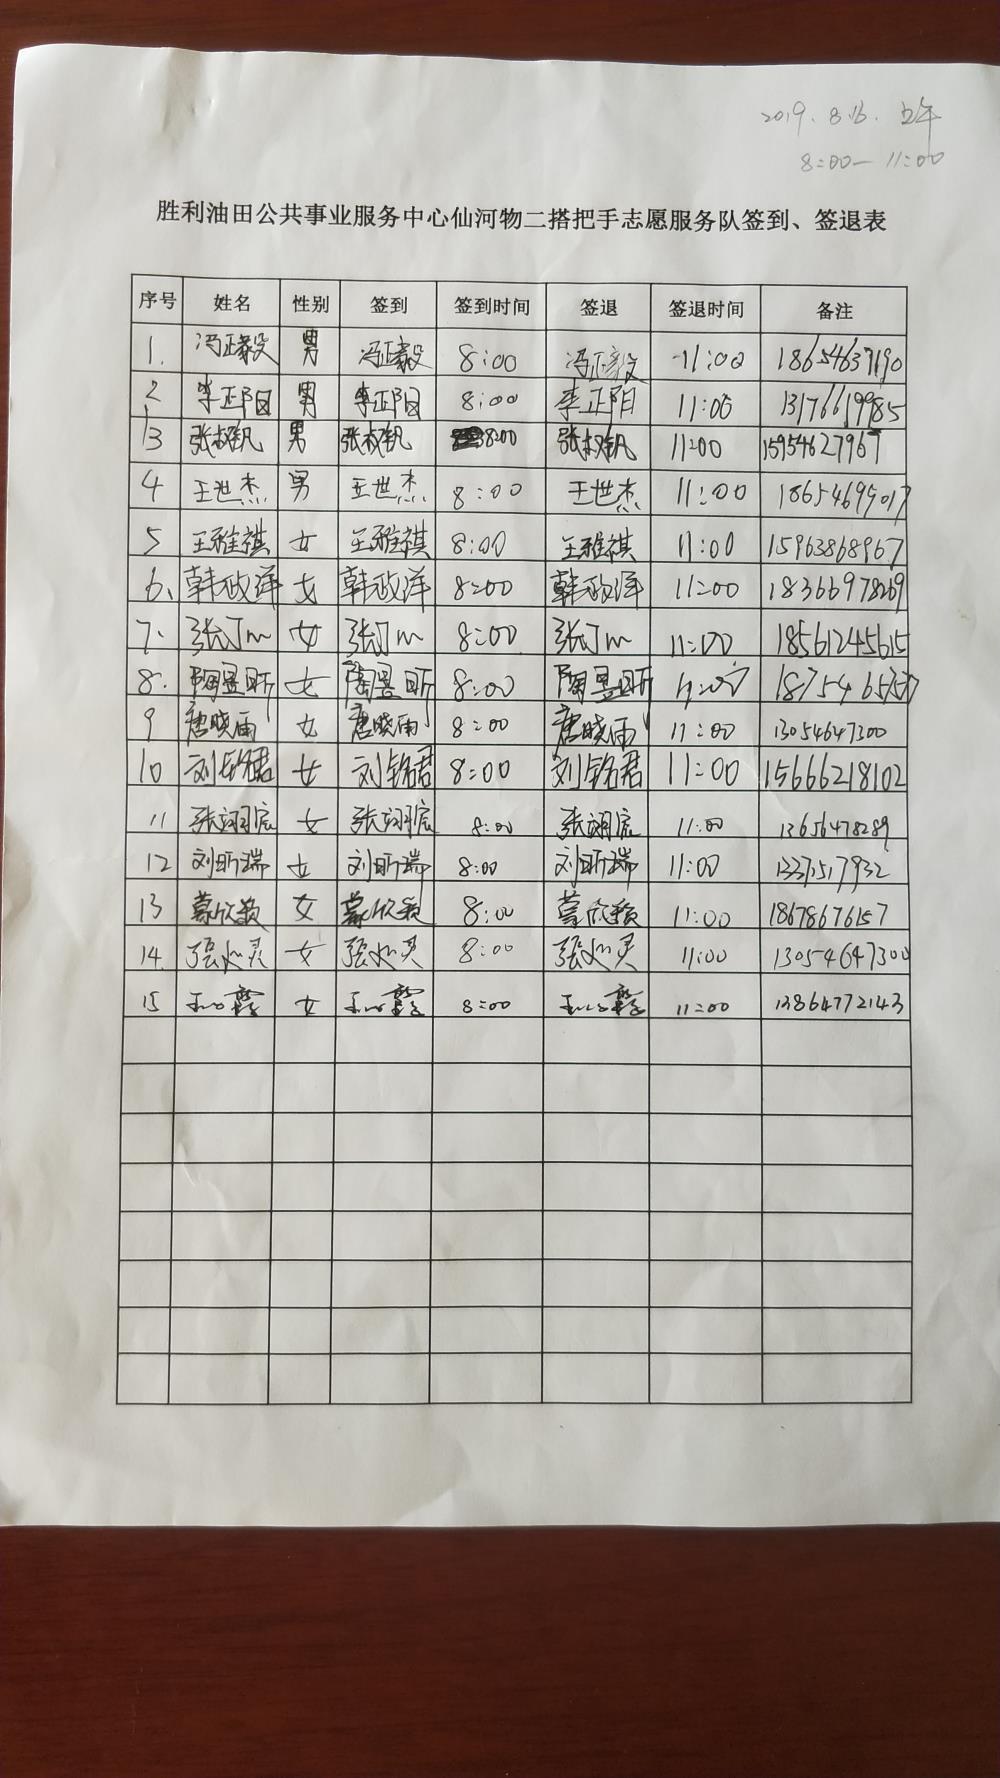 2019.8.16. 上午
8:00—11:00
胜利油田公共事业服务中心仙河物二搭把手志愿服务队签到、签退表
序号 姓名 性别 签到 签到时间 签退 签退时间 备注
1. 冯正毅 男 冯正毅 8:00 冯正毅 11:00 18654637190
2 李正阳 男 李正阳 8:00 李正阳 11:00 13176619985
3 张叔钒 男 张叔钒 8:00 张叔钒 11:00 15954627967
4 王世杰 男 王世杰 8:00 王世杰 11:00 18654699017
5 王雅祺 女 王雅祺 8:00 王雅祺 11:00 15963868967
6、 韩政洋 女 韩政洋 8:00 韩政洋 11:00 18366978269
7. 女 8:00 11:00 18561245615
8. 陶昱昕 女 陶昱昕 8:00 陶昱昕 11:00
9 唐晓雨 女 唐晓雨 8:00 唐晓雨 11:00 13054647300
10 刘铭君 女 刘铭君 8:00 刘铭君 11:00 15666218102
11 张翊宸 女 张翊宸 8:00 张翊宸 11:00 13656478289
12 刘昕瑞 女 刘昕瑞 8:00 刘昕瑞 11:00 13371517932
13 慕欣颖 女 慕欣颖 8:00 慕欣颖 11:00 18678676157
14. 女 8:00 11:00 13054647300
15 女 8:00 11:00 13864772143